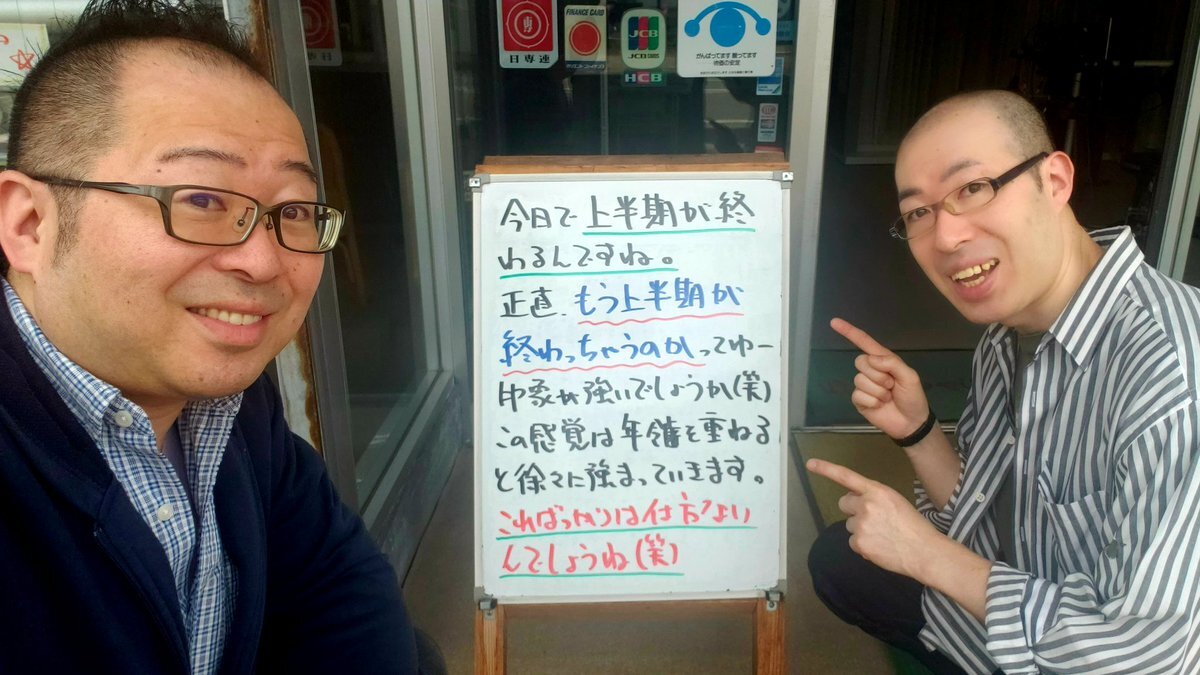 日専連
FINANCE CARD
JCB
JCB CARD
HCB
がんばってます 握ってます
今日で上半期が終
わるんですね。
正直、もう上半期が
終わっちゃうのかってゆー
印象が強いでしょうか(笑)
この感覚は年齢を重ねる
と徐々に強まっていきます。
こればっかりは仕方ない
んでしょうね(笑)